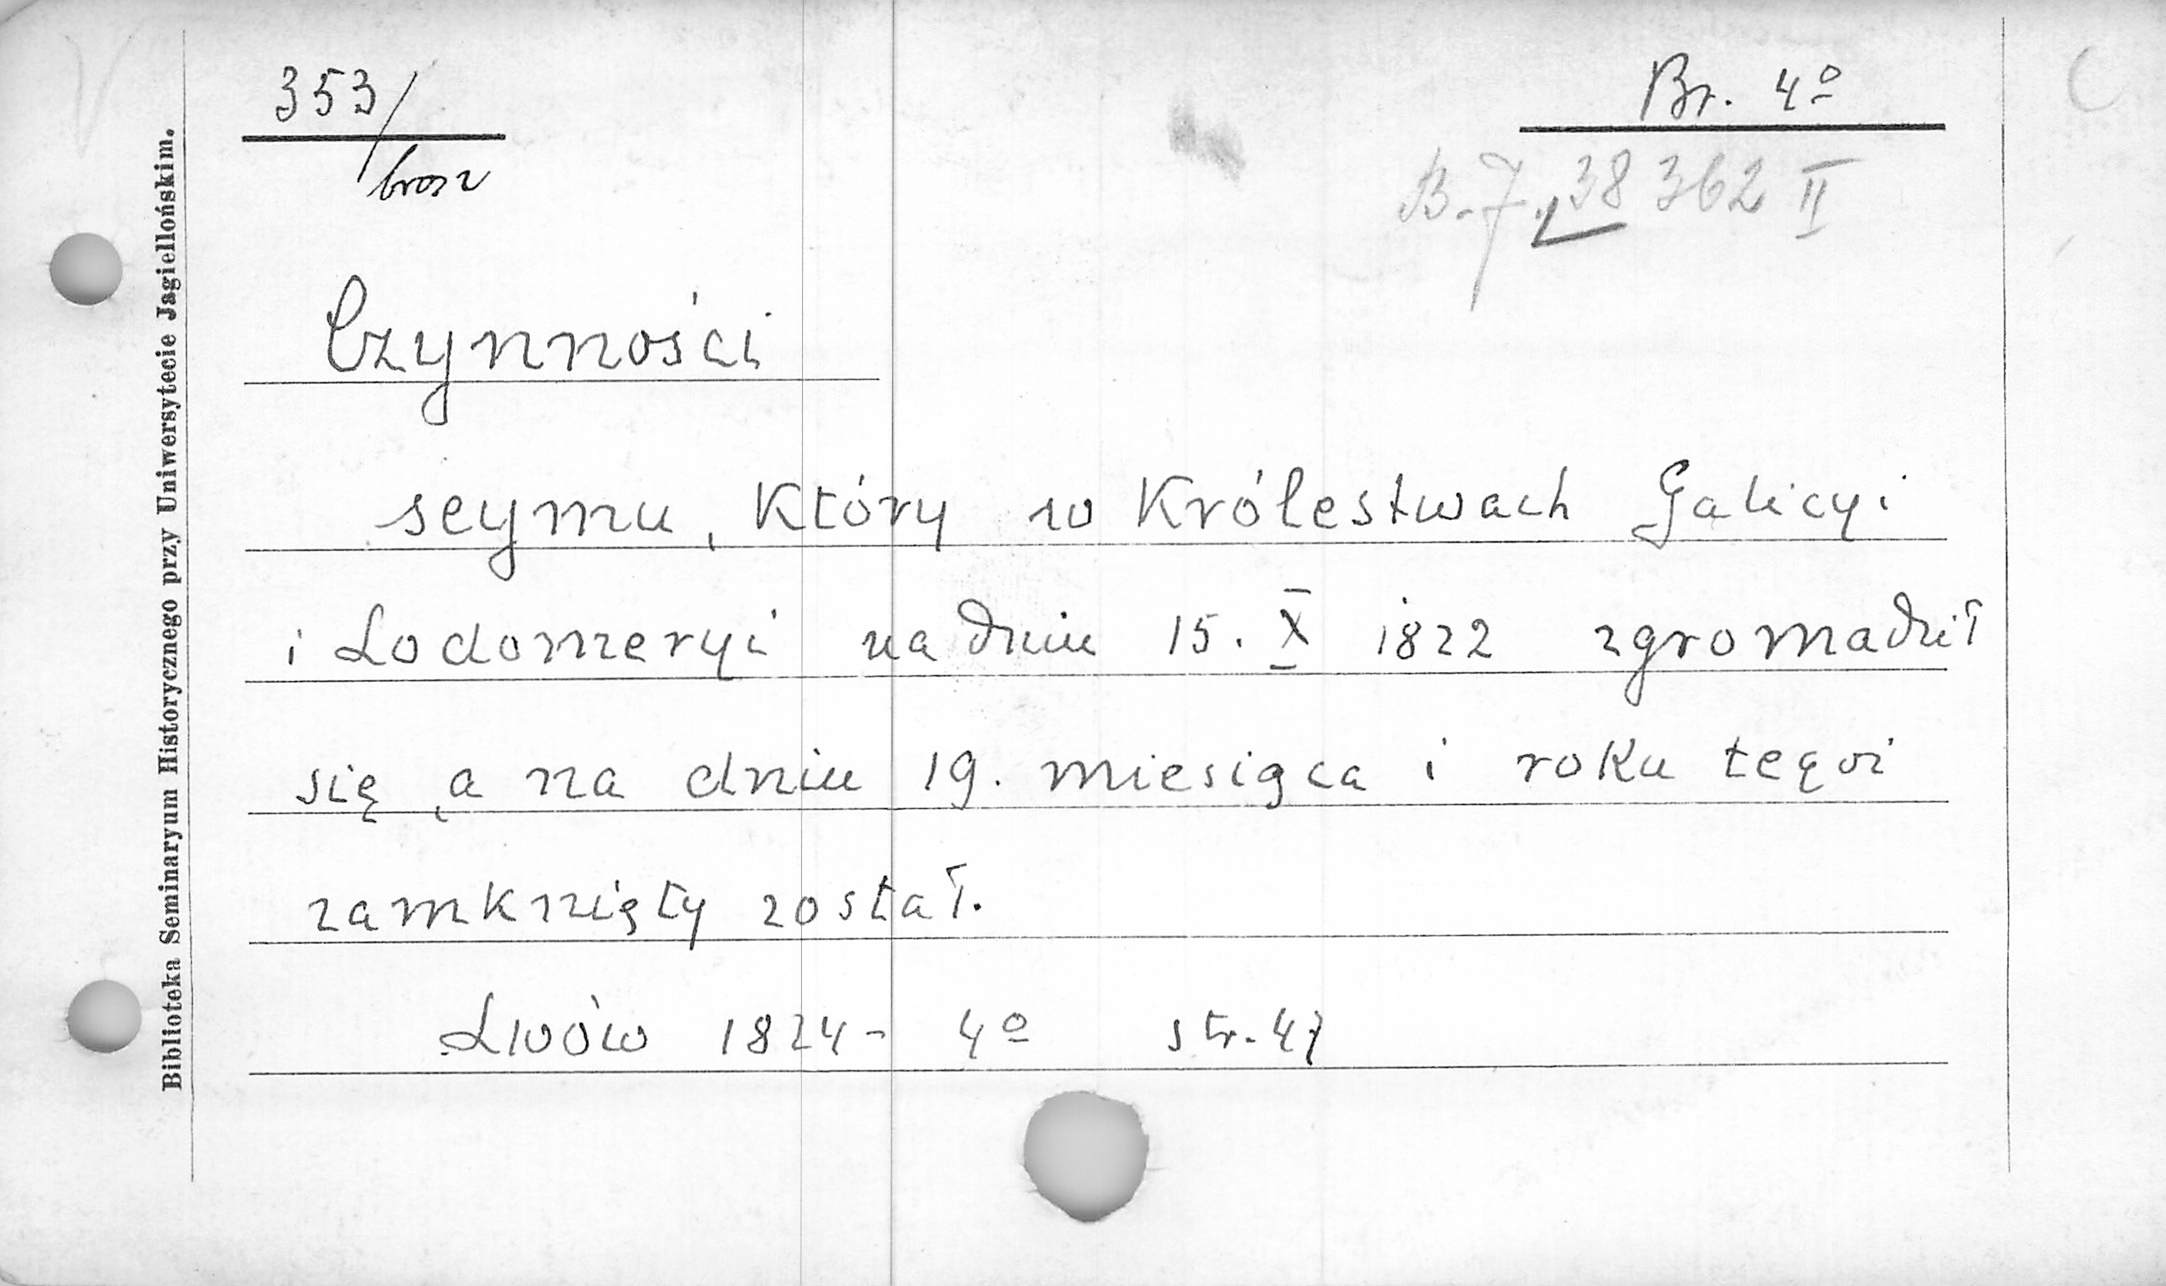 353/brosz
Br. 4º
B.7. 38 362 II
Czynności
seymu, który w Królestwach Galicyi
i Lodomeryi na dniu 15. X 1822 zgromadził
się, a na dniu 19. miesiąca i roku tegoż
zamknięty został.
Lwów 1824 - 4º str. 47
Biblioteka Seminaryum Historycznego przy Uniwersytecie Jagiellońskim.